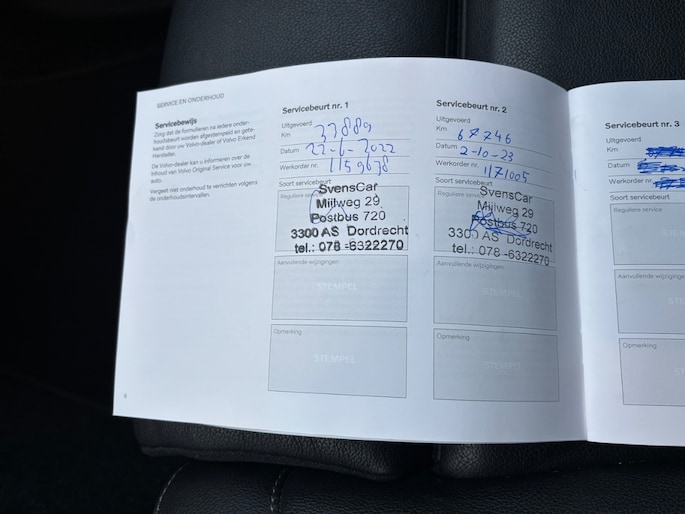 SERVICE EN ONDERHOUD
Servicebewijs
Zorg dat de formulieren na iedere onder-
houdsbeurt worden afgestempeld en gete-
kend door uw Volvo-dealer of Volvo Erkend
Hersteller.
De Volvo-dealer kan u informeren over de
inhoud van Volvo Original Service voor uw
auto.
Vergeet niet onderhoud te verrichten volgens
de onderhoudsintervallen.
Servicebeurt nr. 1
Uitgevoerd
Km 33889
Datum 22-6-2022
Werkorder nr. 1159678
Soort servicebeurt
Reguliere service
SvensCar
Mijlweg 29
Postbus 720
3300 AS Dordrecht
tel.: 078 -6322270
Aanvullende wijzigingen
STEMPEL
Opmerking
STEMPEL
Servicebeurt nr. 2
Uitgevoerd
Km 67746
Datum 2-10-23
Werkorder nr. 1171005
Soort servicebeurt
Reguliere service
SvensCar
Mijlweg 29
Postbus 720
3300 AS Dordrecht
tel.: 078 -6322270
Aanvullende wijzigingen
STEMPEL
Opmerking
STEMPEL
Servicebeurt nr. 3
Uitgevoerd
Km
Datum
Werkorder nr.
Soort servicebeurt
Reguliere service
Aanvullende wijzigingen
Opmerking